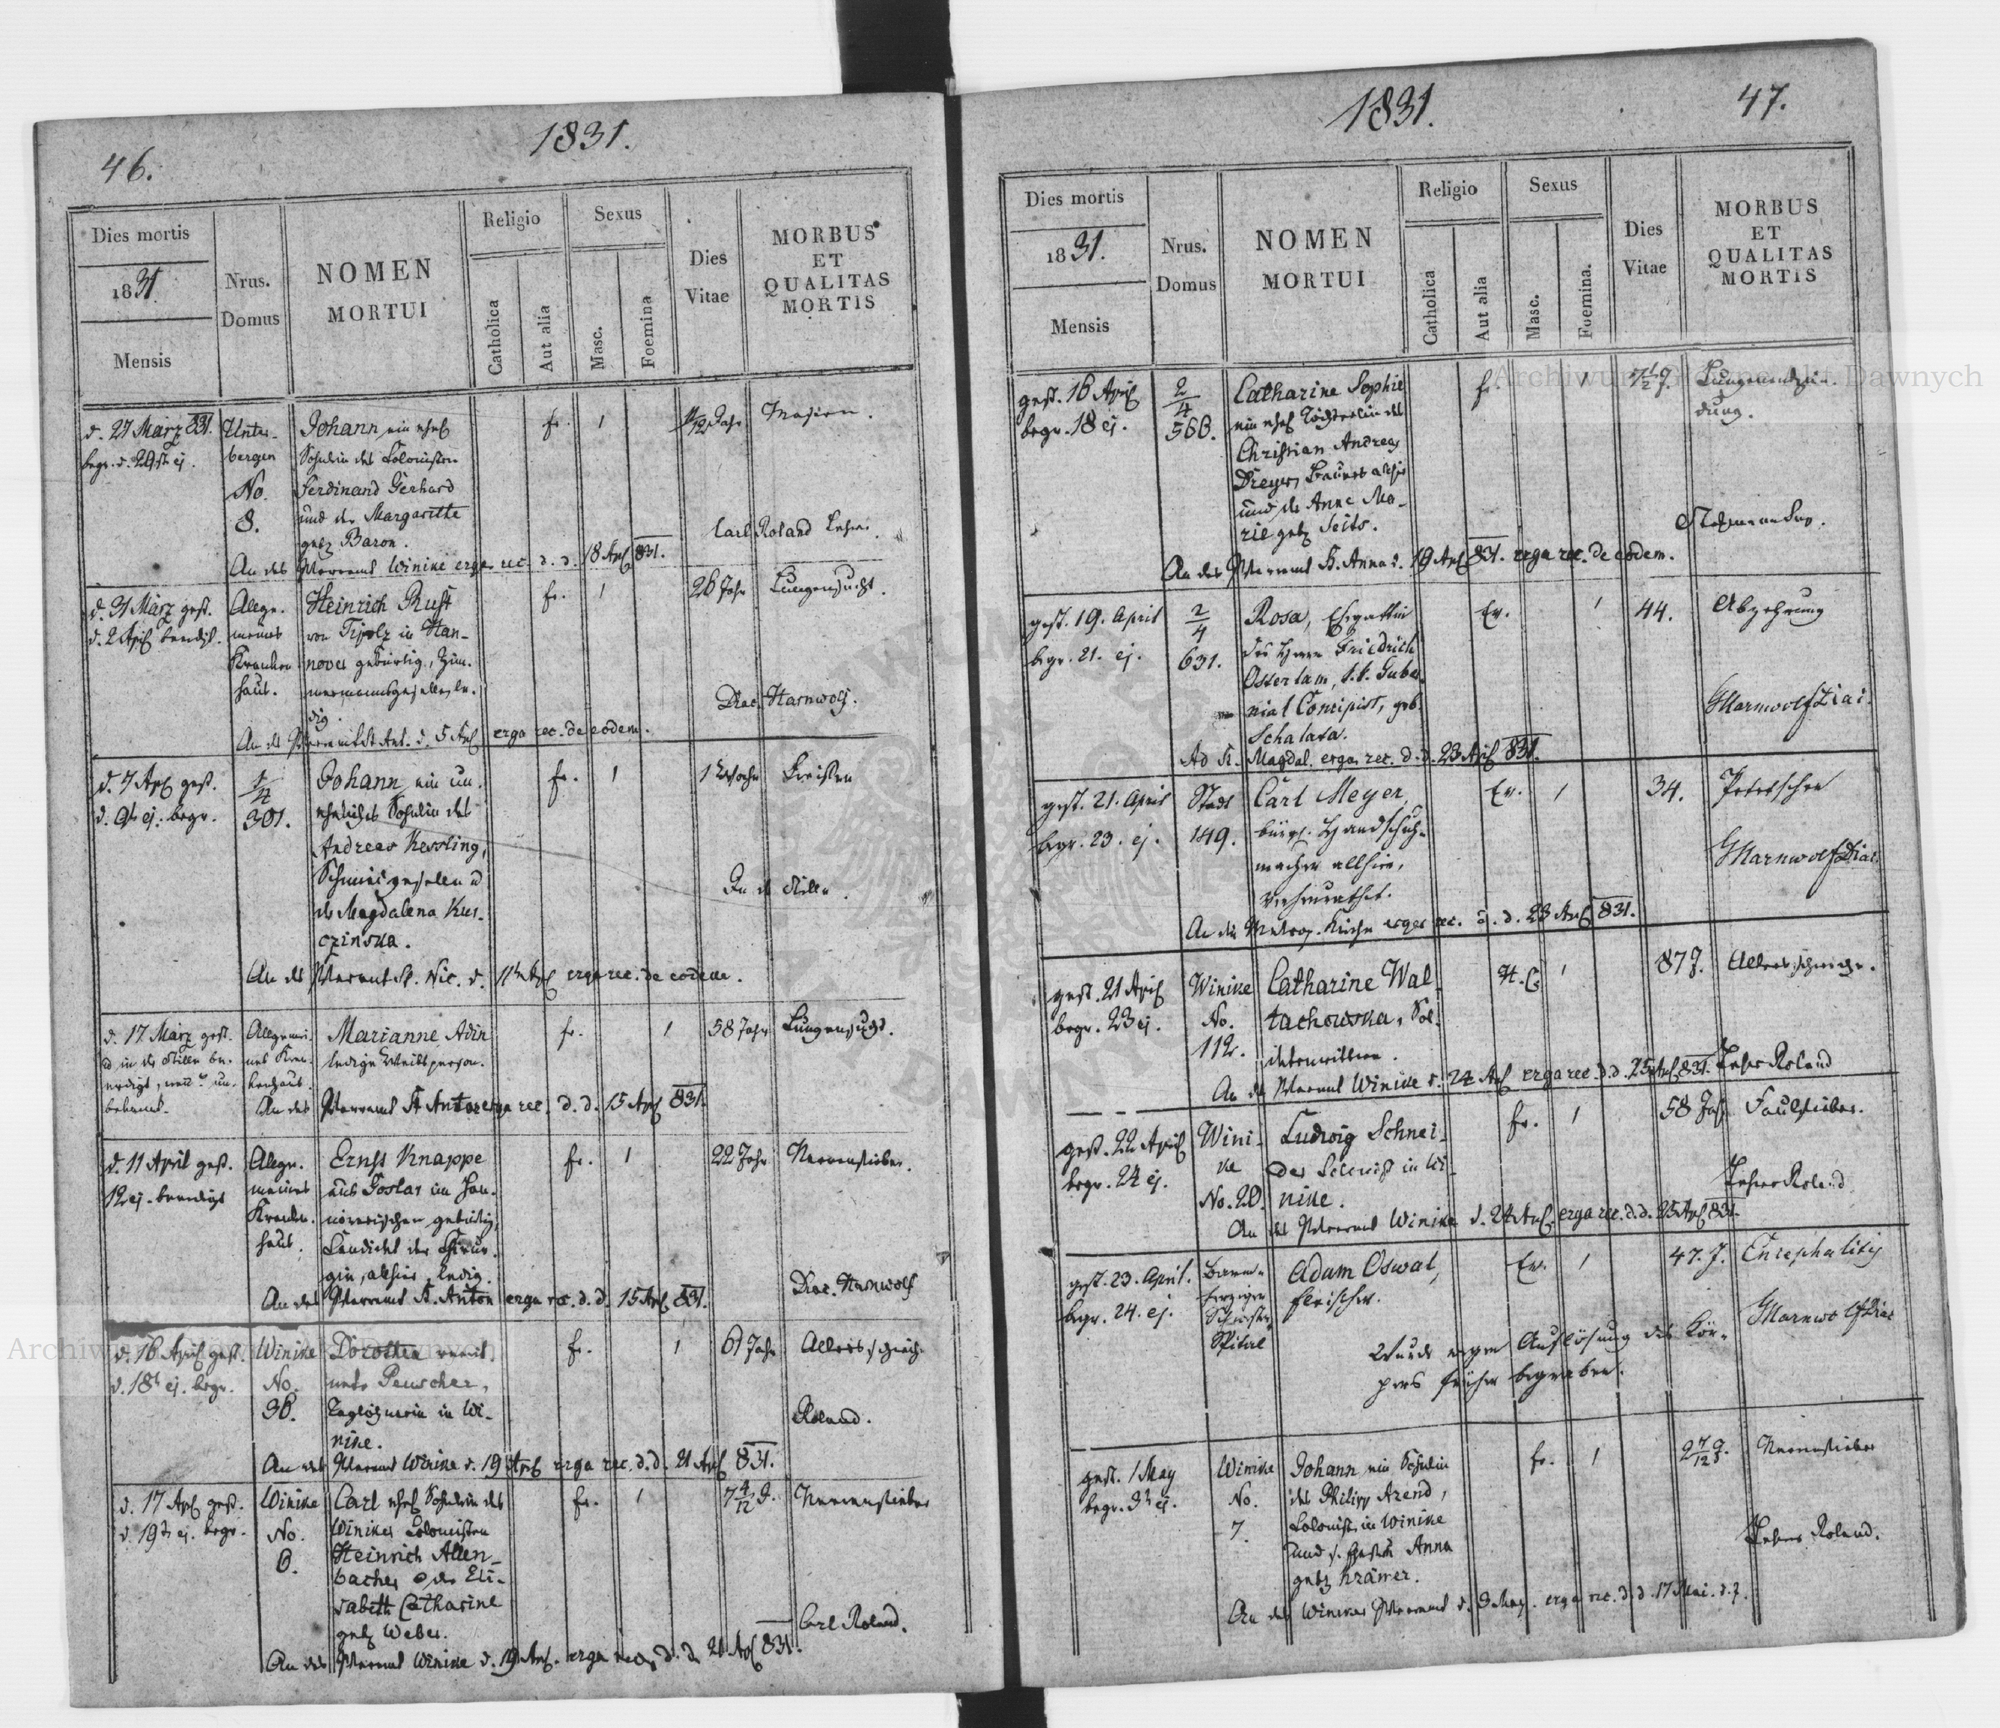 46.
1831.
Dies mortis
1831.
Mensis
Nrus.
Domus
NOMEN
MORTUI
Religio
Catholica
Aut alia
Sexus
Masc.
Foemina
Dies
Vitae
MORBUS
ET
QUALITAS
MORTIS
d. 27 März 831.
begr. d. 29 ej.
Unter-
bergen
No.
8.
Johann, ein ehel
Söhnlein des Colonisten
Ferdinand Gerhard
und der Margarethe
geb Baron.
1
Jahr
Masern.
Carl Roland Lehrer
An das Pfarramt Winike erga rec. d. d. 18 Apl 831.
d. 31 März gest.
d. 2 April beerdigt.
Allge-
meines
Kranken
haus.
Heinrich Rust
in Han-
nover gebürtig, Zim-
mermannsgeselle, le-
dig.
1
26 Jahr
Lungensucht.
Diac. Harnwolf.
An das Pfarramt St Ant. d. 5 Apl erga rec. de eodem.
d. 7 Apl gest.
d. 9 ej. begr.
301.
Johann, ein un-
eheliches Söhnlein des
Andreas Kessling,
Schmiedgesellen u
der Magdalena Kus-
czinska.
1
1 Woche
Fraisen
In der Stille.
An das Pfarramt St. Nic. d. 11 Apl erga rec. de eodem.
d. 17 März gest.
u in der Stille be-
erdigt, un-
bekannt.
Allgemei-
nes Kran-
kenhaus.
Marianne Adin
ledige Weibsperson.
1
58 Jahr
Lungensucht.
An das Pfarramt St Anton erga rec. d. d. 15 Apl 831.
d. 11 April gest.
12 ej. beerdigt
Allge-
meines
Kranken-
haus.
Ernst Knappe
aus Goslar im Han-
növerischen gebürtig,
Candidat der Chirur-
gie, allhier, ledig.
1
22 Jahr
Nervenfieber.
Diac. Harnwolf
An das Pfarramt St. Anton erga rec. d. d. 15 Apl 831.
d. 16 April gest.
d. 18 ej. begr.
Winike
No.
36.
Dorothea verwit-
wete Peuscher,
Taglöhnerin in Wi-
nike.
1
61 Jahr
Altersschwäche
Roland.
An das Pfarramt Winike d. 19 Apl erga rec. d. d. 21 Apl 831.
d. 17 Apl gest.
d. 19 ej. begr.
Winike
No.
6.
Carl ehel Söhnlein des
Winiker Colonisten
Heinrich Allen-
bacher u der Eli-
sabeth Catharine
geb Weber.
1
7 4/12 J.
Nervenfieber
Carl Roland.
An das Pfarramt Winike d. 19 Apl. erga rec. d. d. 21 Apl 831.
1831.
47.
Dies mortis
1831.
Mensis
Nrus.
Domus
NOMEN
MORTUI
Religio
Catholica
Aut alia
Sexus
Masc.
Foemina.
Dies
Vitae
MORBUS
ET
QUALITAS
MORTIS
gest. 16 April
begr. 18 ej.
2/4
566.
Catharine Sophie
ein ehel Töchterlein des
Christian Andreas
Dreyer, allhier
und der Anne Ma-
rie geb Seits.
1
Lungenentzün-
dung.
An das Pfarramt St. Anna d. 19 Apl 831. erga rec. de eodem.
gest. 19. April
begr. 21. ej.
2/4
631.
Rosa, Ehegattin
des Herrn Friedrich
Osterlam, k. k. Guber
nial Concipist, geb.
Schalata.
Ev.
1
44.
Abzehrung
Harnwolf Diac.
Ad St. Magdal. erga rec. d. d. 23 Apl 831.
gest. 21. April
begr. 23. ej.
Stadt
149.
Carl Meyer,
bürgl. Handschuh-
macher allhier,
verheurathet.
Ev.
1
34.
Petetschen
Harnwolf Diac.
An die Metrop. Kirche erga rec. d. d. 23 Apl 831.
gest. 21 April
begr. 23 ej.
Winike
No.
112.
Catharine Wal-
tachowska, Sol-
datenwittwe.
H. C.
1
87 J.
Altersschwäche.
Lehrer Roland
An das Pfarramt Winike d. 24 Apl erga rec. d. d. 25 Apl 831.
gest. 22 April
begr. 24 ej.
Wini-
ke
No. 20.
Ludwig Schnei-
der Colonist in Wi-
nike.
1
58 Jahr
Faulfieber.
Lehrer Roland
An das Pfarramt Winike d. 24 Apl. erga rec. d. d. 25 Apl 831.
gest. 23. April.
begr. 24. ej.
Barm-
herzigen
Schwester
Spital
Adam Oswat,
Fleischer.
Ev.
1
47. J.
Encephalitis
Harnwolf Diac
Wurde wegen Auflösung des Kör-
pers früher begraben.
gest. 1 May
begr. 3 ej.
Winike
No.
7.
Johann ein Söhnlein
des Philipp Arend,
Colonist in Winike
und s. Gattin Anna
geb Krämer.
1
2 7/12 J.
Nervenfieber
Lehrer Roland.
An das Winiker Pfarramt d. 3 May. erga rec. d. d. 17 Mai. d. J.
Archiwum Główne Akt Dawnych
Archiwum Główne Akt Dawnych